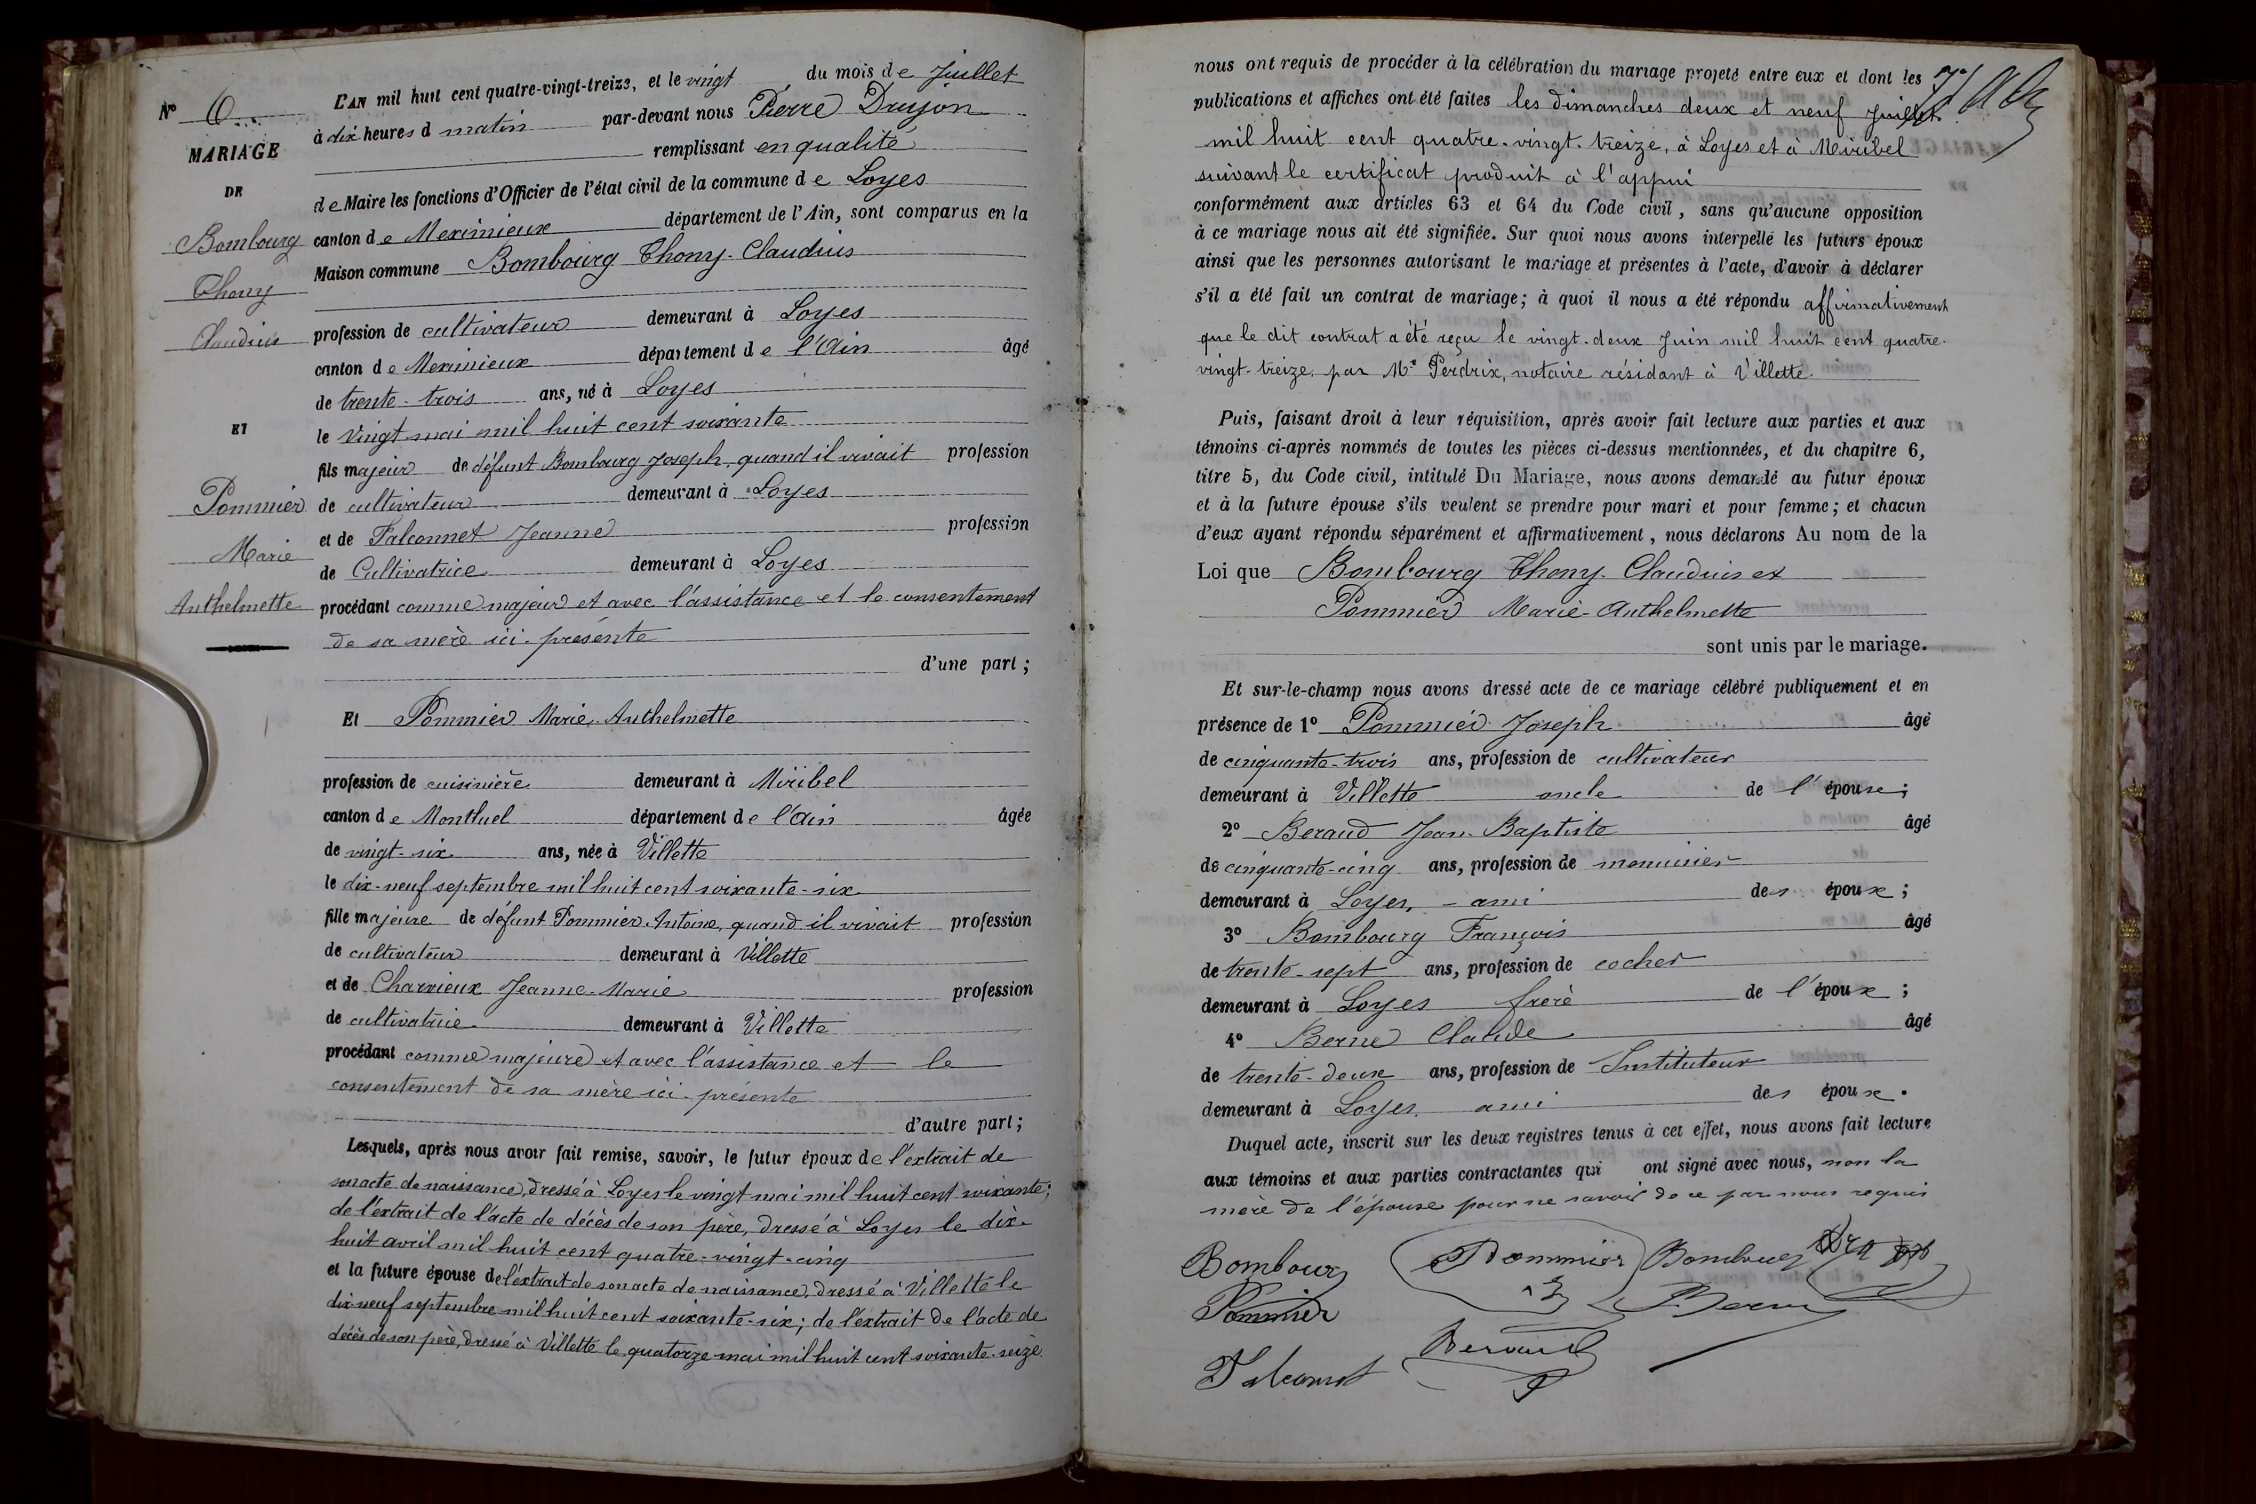 N° 6
MARIAGE
DE
Bombourg
Thony
Claudius
ET
Pommier
Marie
Anthelmette
L'AN mil huit cent quatre-vingt-treize, et le vingt du mois de Juillet
à dix heures d matin par-devant nous Pierre Drujon
remplissant en qualité
de Maire les fonctions d'Officier de l'état civil de la commune de Loyes
canton de Meximieux département de l'Ain, sont comparus en la
Maison commune Bombourg Thony-Claudius
profession de cultivateur demeurant à Loyes
canton de Meximieux département de l'Ain âgé
de trente-trois ans, né à Loyes
le vingt mai mil huit cent soixante
fils majeur de défunt Bombourg Joseph, quand il vivait profession
de cultivateur demeurant à Loyes
et de Falconnet Jeanne profession
de Cultivatrice demeurant à Loyes
procédant comme majeur et avec l'assistance et le consentement
de sa mère ici-présente
d'une part ;
Et Pommier Marie-Anthelmette
profession de cuisinière demeurant à Miribel
canton de Montluel département de l'Ain âgée
de vingt-six ans, née à Villette
le dix-neuf septembre mil huit cent soixante-six
fille majeure de défunt Pommier Antoine, quand il vivait profession
de cultivateur demeurant à Villette
et de Charvieux Jeanne-Marie profession
de cultivatrice demeurant à Villette
procédant comme majeure et avec l'assistance et le
consentement de sa mère ici-présente
d'autre part ;
Lesquels, après nous avoir fait remise, savoir, le futur époux de l'extrait de
son acte de naissance, dressé à Loyes le vingt mai mil huit cent soixante ;
de l'extrait de l'acte de décès de son père, dressé à Loyes le dix-
huit avril mil huit cent quatre-vingt-cinq
et la future épouse de l'extrait de son acte de naissance, dressé à Villette le
dix-neuf septembre mil huit cent soixante-six ; de l'extrait de l'acte de
décès de son père, dressé à Villette le quatorze mai mil huit cent soixante-seize
nous ont requis de procéder à la célébration du mariage projeté entre eux et dont les
publications et affiches ont été faites les dimanches deux et neuf Juillet
mil huit cent quatre-vingt-treize, à Loyes et à Miribel
suivant le certificat produit à l'appui
conformément aux articles 63 et 64 du Code civil, sans qu'aucune opposition
à ce mariage nous ait été signifiée. Sur quoi nous avons interpellé les futurs époux
ainsi que les personnes autorisant le mariage et présentes à l'acte, d'avoir à déclarer
s'il a été fait un contrat de mariage ; à quoi il nous a été répondu affirmativement
que le dit contrat a été reçu le vingt-deux Juin mil huit cent quatre-
vingt-treize, par Me Perdrix, notaire résidant à Villette.
Puis, faisant droit à leur réquisition, après avoir fait lecture aux parties et aux
témoins ci-après nommés de toutes les pièces ci-dessus mentionnées, et du chapitre 6,
titre 5, du Code civil, intitulé Du Mariage, nous avons demandé au futur époux
et à la future épouse s'ils veulent se prendre pour mari et pour femme ; et chacun
d'eux ayant répondu séparément et affirmativement, nous déclarons Au nom de la
Loi que Bombourg Thony-Claudius et
Pommier Marie-Anthelmette
sont unis par le mariage.
Et sur-le-champ nous avons dressé acte de ce mariage célébré publiquement et en
présence de 1° Pommier Joseph âgé
de cinquante-trois ans, profession de cultivateur
demeurant à Villette oncle de l'épouse ;
2° Beraud Jean-Baptiste âgé
de cinquante-cinq ans, profession de menuisier
demeurant à Loyes, - ami des époux ;
3° Bombourg François âgé
de trente-sept ans, profession de cocher
demeurant à Loyes frère de l'époux ;
4° Berne Claude âgé
de trente-deux ans, profession de Instituteur
demeurant à Loyes, ami des époux.
Duquel acte, inscrit sur les deux registres tenus à cet effet, nous avons fait lecture
aux témoins et aux parties contractantes qui ont signé avec nous, non la
mère de l'épouse pour ne savoir de ce par nous requis
Bombourg Pommier Bombourg
Pommier Berne
Beraud
Falconnet